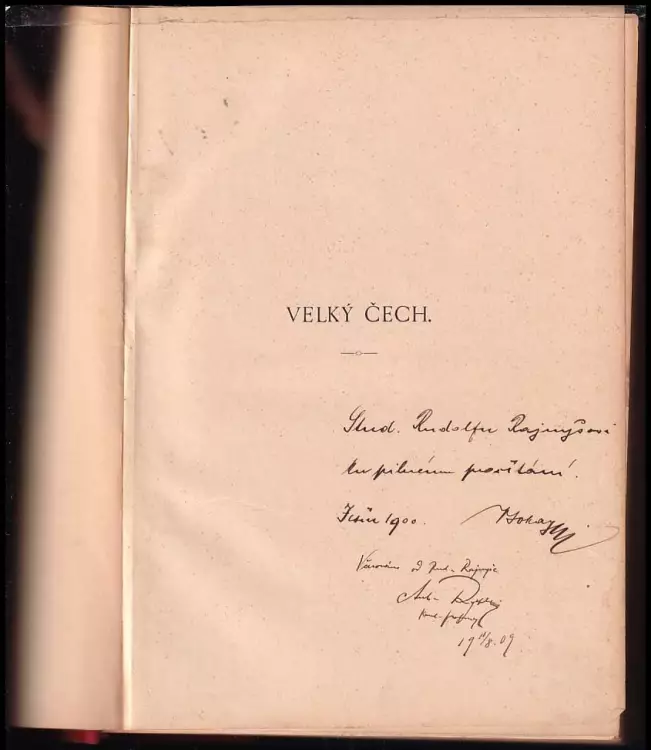 VELKÝ ČECH.
Stud. Rudolfu Rajmyšovi
ku pilnému pročítání.
Jičín 1900.
Věnováno od Rud.
Ant.
19 11/8 09